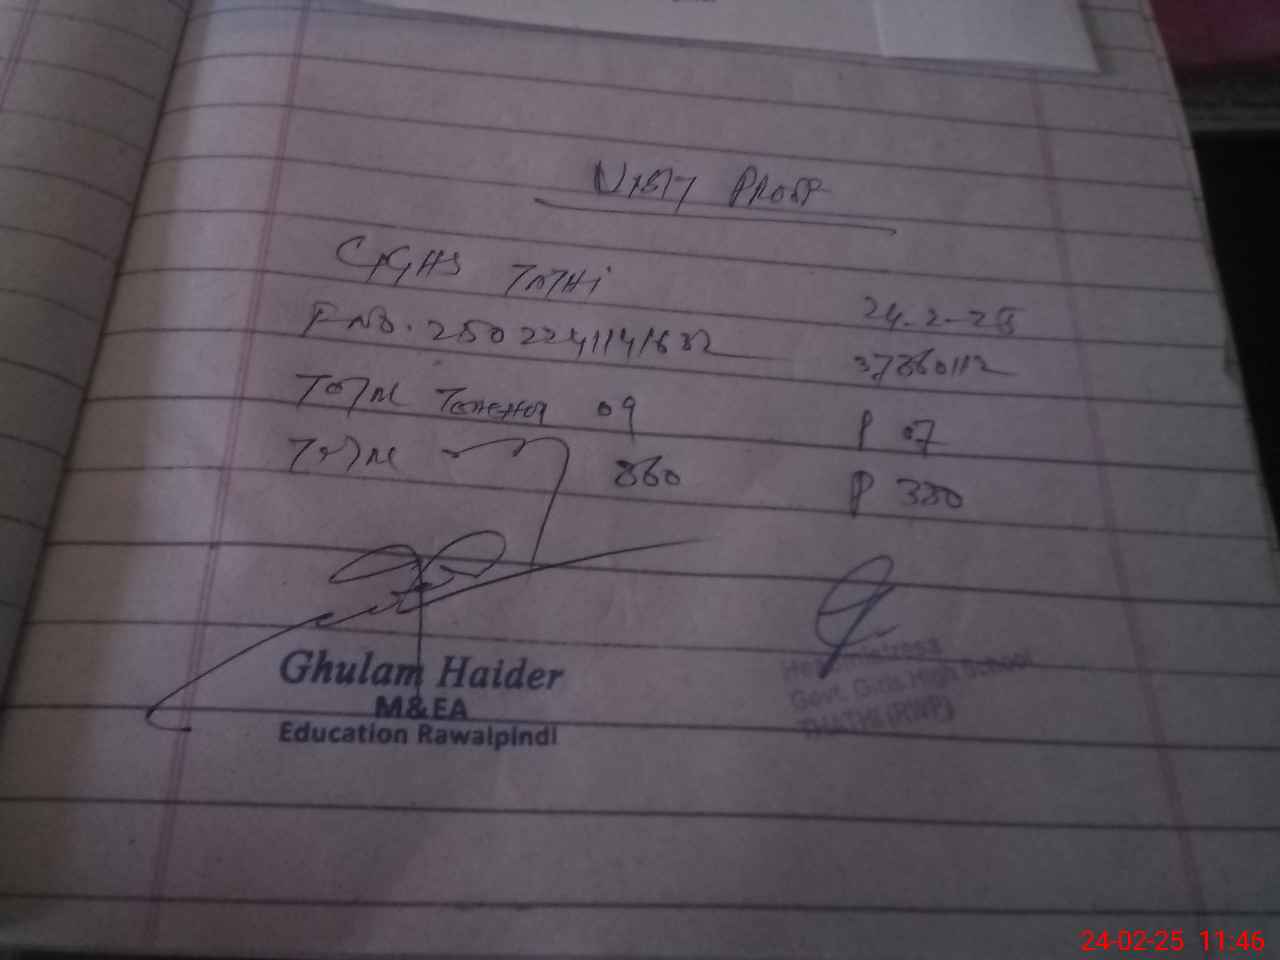 VISIT PROOF
GGHS TATHI
24-2-25
P NO. 25022411141632
37360112
TOTAL TEACHER 09
P 07
TOTAL
360
P 330
Ghulam Haider
M&EA
Education Rawalpindi
Headmistress
Govt. Girls High School
THATHI (RWP)
24-02-25 11:46